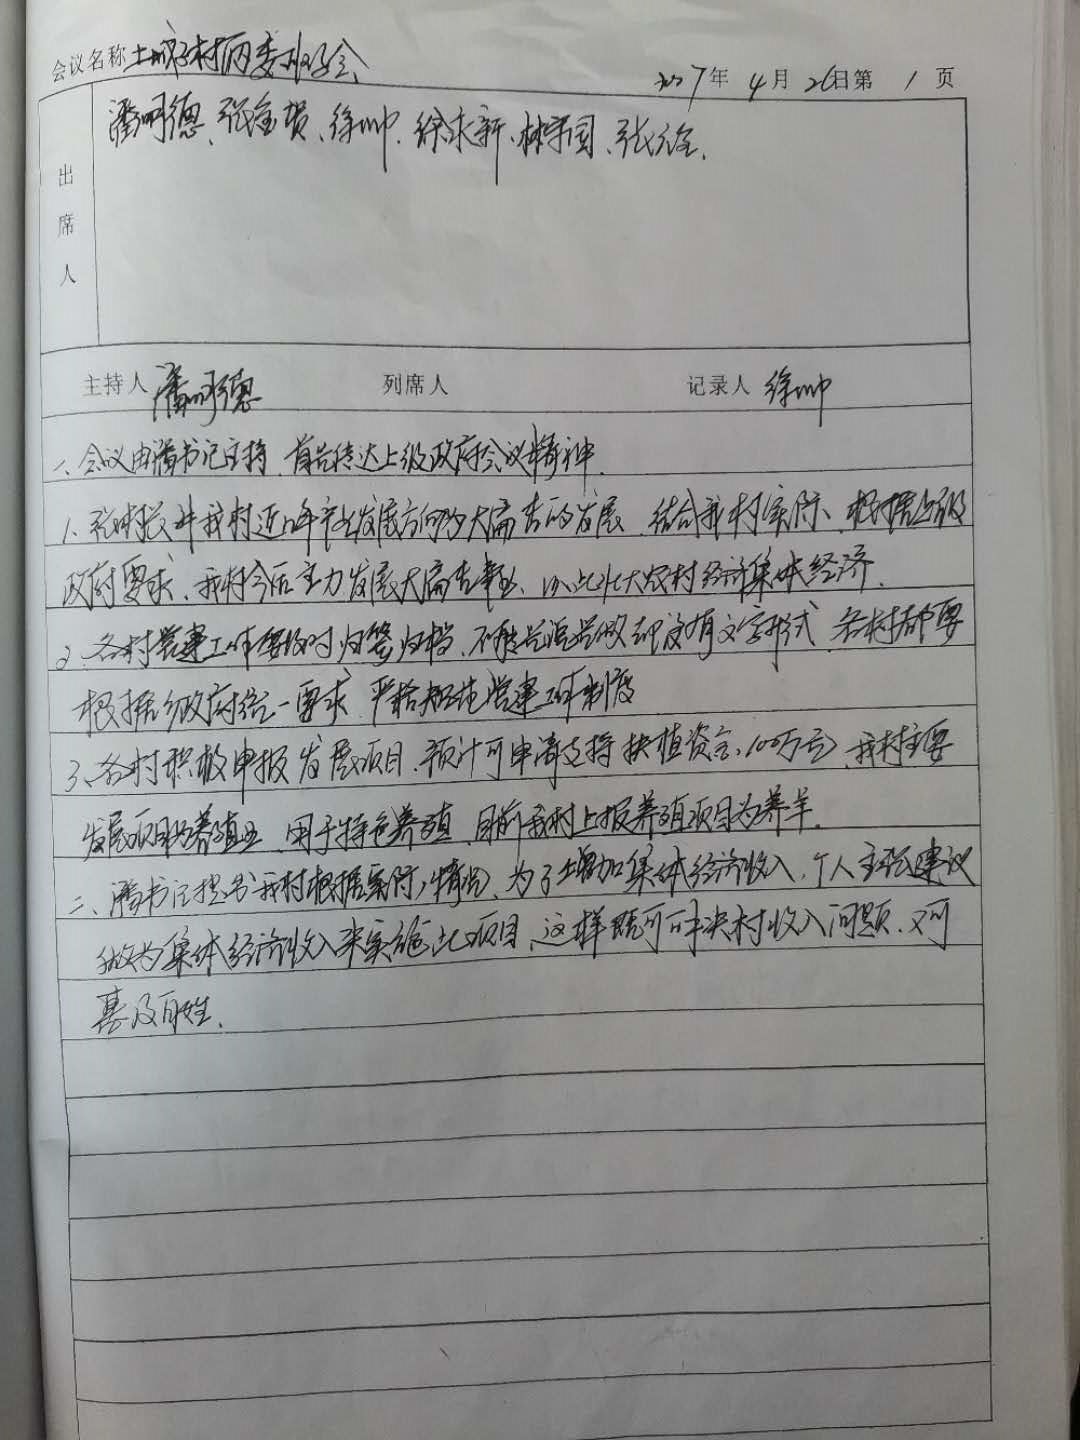 会议名称 土城子村两委班子会 年 4 月 26日第 1 页
出席人
潘明德、张金贵、徐帅、徐永新、林守国、张金
主持人 潘明德 列席人 记录人 徐帅
一、会议由潘书记主持,首先传达上级政府会议精神.
1、张村长讲我村近几年产业发展方向为大扁杏的发展,结合我村实际、根据上级
政府要求、我村今后主力发展大扁杏事业、以此壮大农村经济集体经济.
2、各村党建工作要及时归签归档、不能光说光做却没有文字形式、各村都要
根据乡政府统一要求,严格规范党建工作制度
3、各村积极申报发展项目,预计可申请支持扶植资金、100万元、我村主要
发展项目为养殖业、用于特色养殖,目前我村上报养殖项目为养羊.
二、潘书记提出我村根据实际情况、为了增加集体经济收入,个人主张建议
做为集体经济收入来实施此项目,这样既可解决村收入问题,又可
惠及百姓.